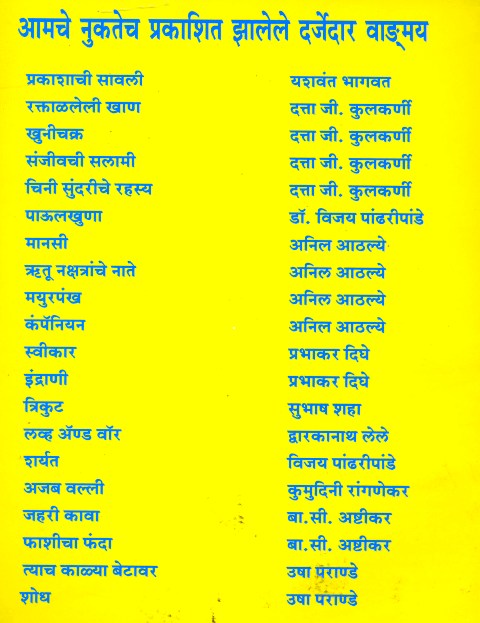 आमचे नुकतेच प्रकाशित झालेले दर्जेदार वाङ्मय
प्रकाशाची सावली यशवंत भागवत
रक्ताळलेली खाण दत्ता जी. कुलकर्णी
खुनीचक्र दत्ता जी. कुलकर्णी
संजीवची सलामी दत्ता जी. कुलकर्णी
चिनी सुंदरीचे रहस्य दत्ता जी. कुलकर्णी
पाऊलखुणा डॉ. विजय पांढरीपांडे
मानसी अनिल आठल्ये
ऋतू नक्षत्रांचे नाते अनिल आठल्ये
मयुरपंख अनिल आठल्ये
कंपॅनियन अनिल आठल्ये
स्वीकार प्रभाकर दिघे
इंद्राणी प्रभाकर दिघे
त्रिकुट सुभाष शहा
लव्ह ॲण्ड वॉर द्वारकानाथ लेले
शर्यत विजय पांढरीपांडे
अजब वल्ली कुमुदिनी रांगणेकर
जहरी कावा बा.सी. अष्टीकर
फाशीचा फंदा बा.सी. अष्टीकर
त्याच काळ्या बेटावर उषा पराण्डे
शोध उषा पराण्डे